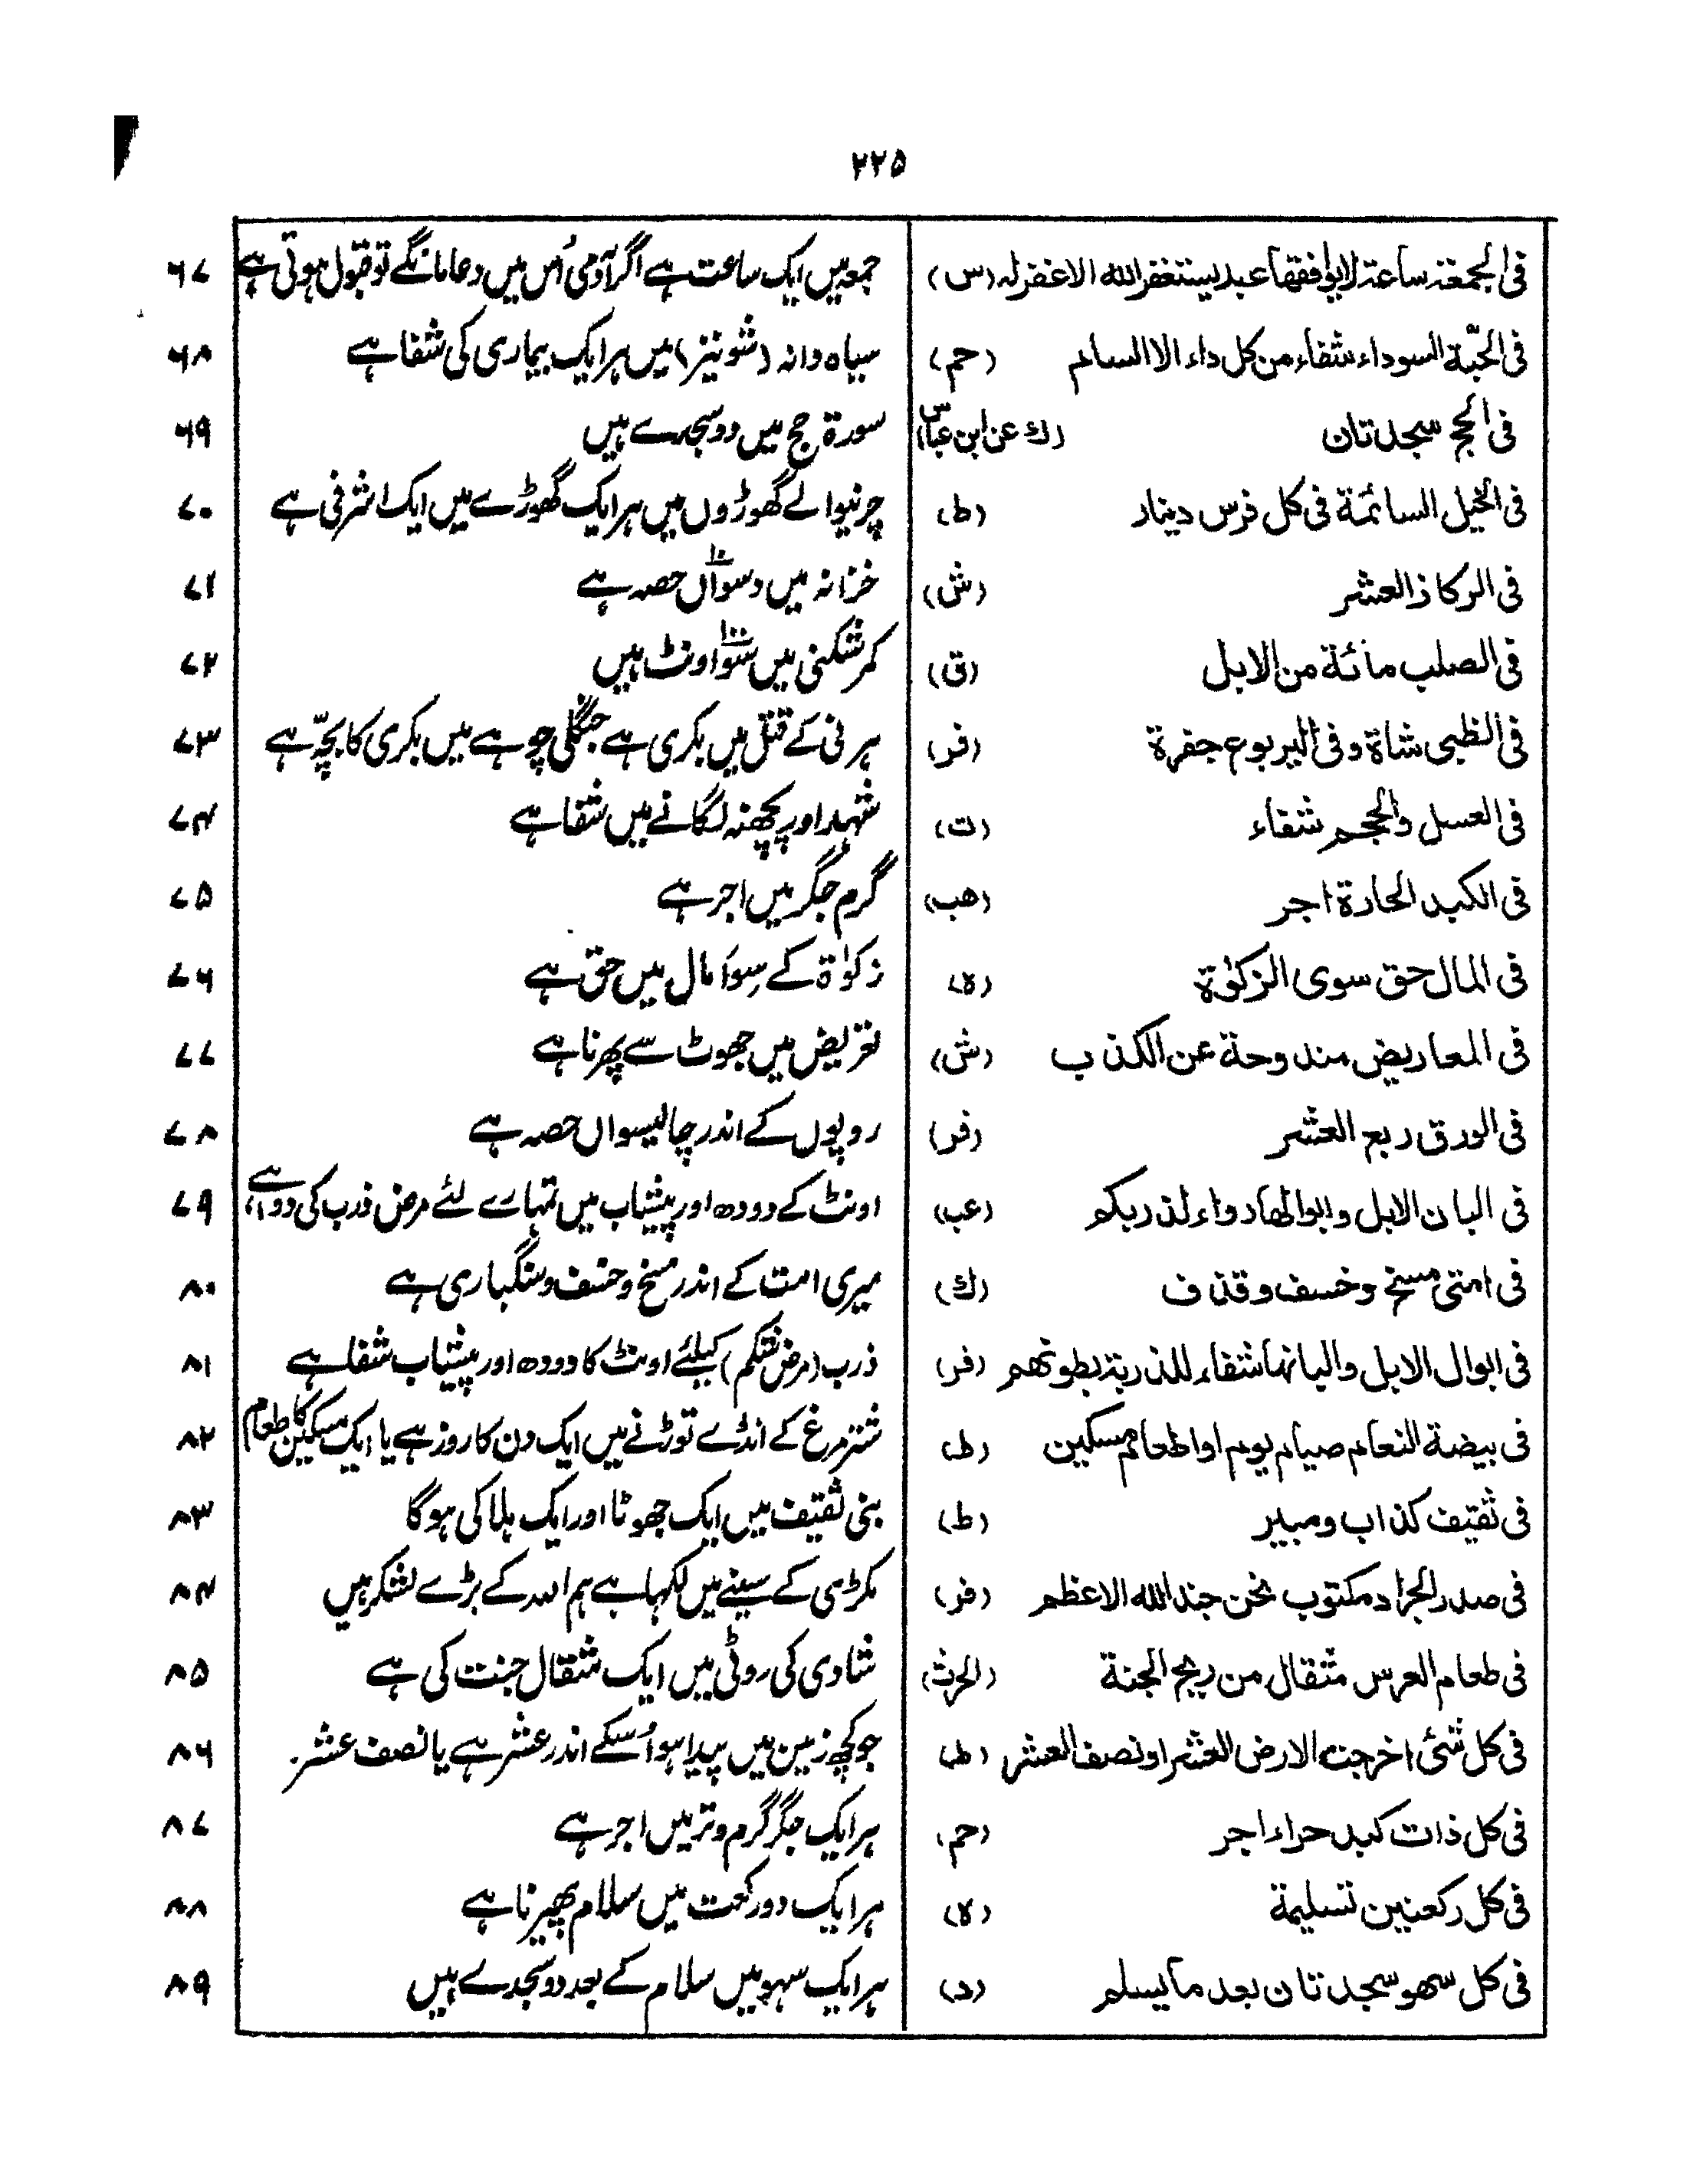 ۲۲۵
فی الجمعۃ ساعۃ لایوافقھا عبد یستغفر اللہ الاغفرلہ (س) جمعہ میں ایک ساعت ہے اگر آدمی اُس میں دعا مانگے تو قبول ہوتی ہے ۶۷
فی الحبّۃ السوداء شفاء من کل داء الا السام (حم) سیاہ دانہ (شونیز) میں ہر ایک بیماری کی شفا ہے ۶۸
فی الحج سجدتان (ك عن ابن عباس) سورۃ حج میں دو سجدے ہیں ۶۹
فی الخیل السائمۃ فی کل فرس دینار (ط) چرنیوالے گھوڑوں میں ہر ایک گھوڑے میں ایک اشرفی ہے ۷۰
فی الرکاز العشر (ش) خزانہ میں دسواں ۱۰ حصہ ہے ۷۱
فی الصلب مائۃ من الابل (ق) کمر شکنی میں سَو ۱۰۰ اونٹ ہیں ۷۲
فی الظبی شاۃ وفی الیربوع جفرۃ (فر) ہرنی کے قتل میں بکری ہے جنگلی چوہے میں بکری کا بچّہ ہے ۷۳
فی العسل والحجم شفاء (ت) شہد اور پچھنہ لگانے میں شفا ہے ۷۴
فی الکبد الحارۃ اجر (ھب) گرم جگر میں اجر ہے ۷۵
فی المال حق سوی الزکوٰۃ (ہ) زکوٰۃ کے سِوا مال میں حق ہے ۷۶
فی المعاریض مندوحۃ عن الکذب (ش) تعریض میں جھوٹ سے پھرنا ہے ۷۷
فی الورق ربع العشر (فر) روپوں کے اندر چالیسواں حصہ ہے ۷۸
فی البان الابل وابوالھا دواء لذربکم (عب) اونٹ کے دودھ اور پیشاب میں تمہارے لئے مرض ذرب کی دوا ہے ۷۹
فی امتی مسخ وخسف وقذف (ك) میری امت کے اندر مسخ وخسف وسنگباری ہے ۸۰
فی ابوال الابل والبانھا شفاء للذربۃ بطونھم (فر) ذرب (مرض شکم) کیلئے اونٹ کا دودھ اور پیشاب شفا ہے ۸۱
فی بیضۃ النعام صیام یوم او اطعام مسکین (ط) شترمرغ کے انڈے توڑنے میں ایک دن کا روزہ ہے یا ایک مسکین کا طعام ۸۲
فی ثقیف کذاب ومبیر (ط) بنی ثقیف میں ایک جھوٹا اور ایک ہلاکی ہوگا ۸۳
فی صدر الجراد مکتوب نحن جند اللہ الاعظم (فر) مکڑی کے سینے میں لکھا ہے ہم اللہ کے بڑے لشکر ہیں ۸۴
فی طعام العرس مثقال من ریح الجنۃ (الحرث) شادی کی روٹی میں ایک مثقال جنت کی ہے ۸۵
فی کل شئ اخرجت الارض العشر او نصف العشر (ط) جو کچھ زمین میں پیدا ہوا اُسکے اندر عشر ہے یا نصف عشر۔ ۸۶
فی کل ذات کبد حراء اجر (حم) ہر ایک جگر گرم وتر میں اجر ہے ۸۷
فی کل رکعتین تسلیمۃ (ہ) ہر ایک دو رکعت میں سلام پھیرنا ہے ۸۸
فی کل سھو سجدتان بعد ما یسلم (د) ہر ایک سہو میں سلام کے بعد دو سجدے ہیں ۸۹